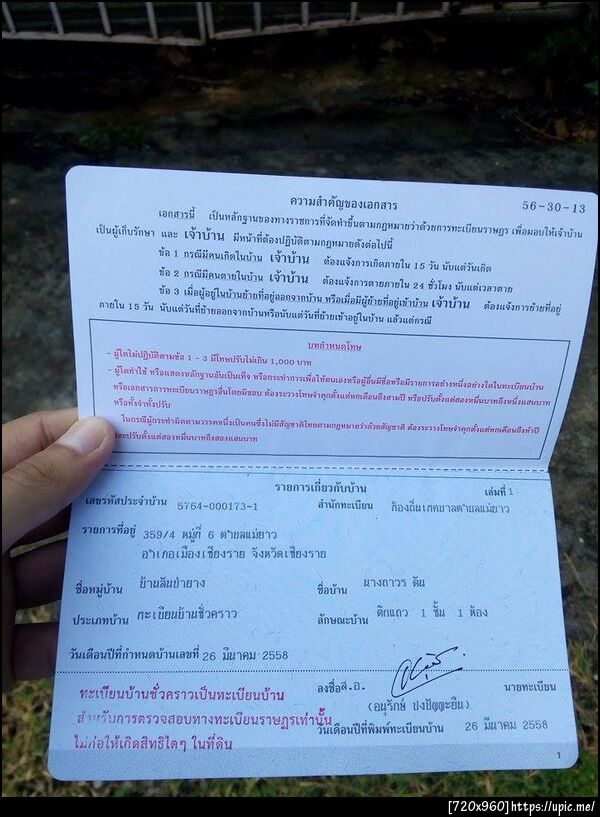 ความสำคัญของเอกสาร
56-30-13
เอกสารนี้ เป็นหลักฐานของทางราชการที่จัดทำขึ้นตามกฎหมายว่าด้วยการทะเบียนราษฎร เพื่อมอบให้เจ้าบ้าน
เป็นผู้เก็บรักษา และ เจ้าบ้าน มีหน้าที่ต้องปฏิบัติตามกฎหมายดังต่อไปนี้
ข้อ 1 กรณีมีคนเกิดในบ้าน เจ้าบ้าน ต้องแจ้งการเกิดภายใน 15 วัน นับแต่วันเกิด
ข้อ 2 กรณีมีคนตายในบ้าน เจ้าบ้าน ต้องแจ้งการตายภายใน 24 ชั่วโมง นับแต่เวลาตาย
ข้อ 3 เมื่อผู้อยู่ในบ้านย้ายที่อยู่ออกจากบ้าน หรือเมื่อมีผู้ย้ายที่อยู่เข้าบ้าน เจ้าบ้าน ต้องแจ้งการย้ายที่อยู่
ภายใน 15 วัน นับแต่วันที่ย้ายออกจากบ้านหรือนับแต่วันที่ย้ายเข้าอยู่ในบ้าน แล้วแต่กรณี
บทกำหนดโทษ
- ผู้ใดไม่ปฏิบัติตามข้อ 1 - 3 มีโทษปรับไม่เกิน 1,000 บาท
- ผู้ใดทำ ใช้ หรือแสดงหลักฐานอันเป็นเท็จ หรือกระทำการเพื่อให้ตนเองหรือผู้อื่นมีชื่อหรือมีรายการอย่างหนึ่งอย่างใดในทะเบียนบ้าน
หรือเอกสารการทะเบียนราษฎรอื่นโดยมิชอบ ต้องระวางโทษจำคุกตั้งแต่หกเดือนถึงสามปี หรือปรับตั้งแต่สองหมื่นบาทถึงหนึ่งแสนบาท
หรือทั้งจำทั้งปรับ
ในกรณีผู้กระทำผิดตามวรรคหนึ่งเป็นคนซึ่งไม่มีสัญชาติไทยตามกฎหมายว่าด้วยสัญชาติ ต้องระวางโทษจำคุกตั้งแต่หกเดือนถึงห้าปี
และปรับตั้งแต่สองหมื่นบาทถึงสองแสนบาท
รายการเกี่ยวกับบ้าน
เล่มที่ 1
เลขรหัสประจำบ้าน 5764-000173-1
สำนักทะเบียน ท้องถิ่นเทศบาลตำบลแม่ยาว
รายการที่อยู่ 359/4 หมู่ที่ 6 ตำบลแม่ยาว
อำเภอเมืองเชียงราย จังหวัดเชียงราย
ชื่อหมู่บ้าน บ้านลินป่ายาง
ชื่อบ้าน นางถาวร ตัน
ประเภทบ้าน ทะเบียนบ้านชั่วคราว
ลักษณะบ้าน ตึกแถว 1 ชั้น 1 ห้อง
วันเดือนปีที่กำหนดบ้านเลขที่ 26 มีนาคม 2558
ลงชื่อ ส.อ.
นายทะเบียน
(อนุรักษ์ ปงปัญญะยืน)
วันเดือนปีที่พิมพ์ทะเบียนบ้าน 26 มีนาคม 2558
ทะเบียนบ้านชั่วคราวเป็นทะเบียนบ้าน
สำหรับการตรวจสอบทางทะเบียนราษฎรเท่านั้น
ไม่ก่อให้เกิดสิทธิใดๆ ในที่ดิน
1
[720x960]https://upic.me/